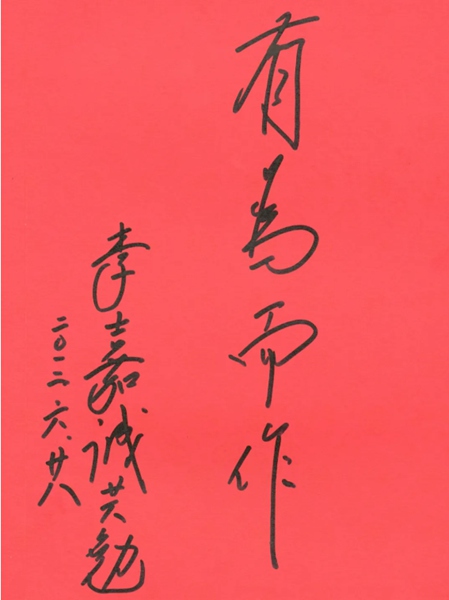 有為而作
李嘉诚共勉
二〇一二六、廿八